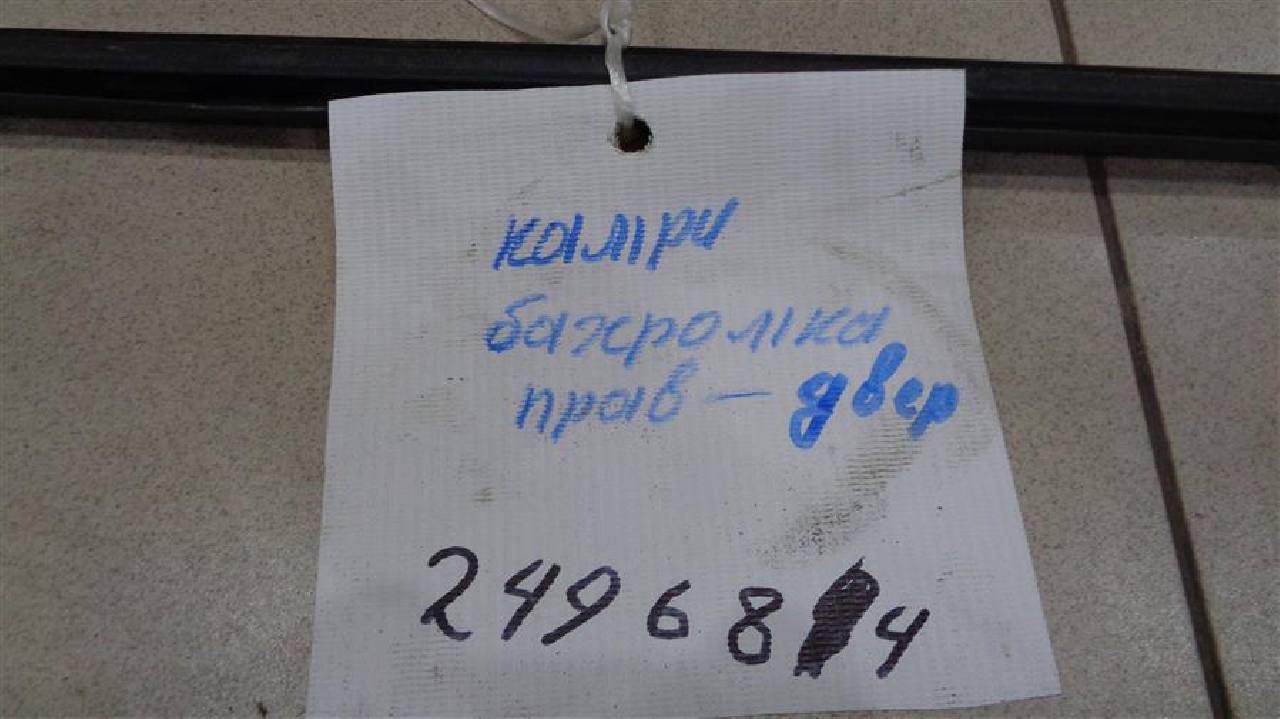 камри
бахромка
прав - двер
249684